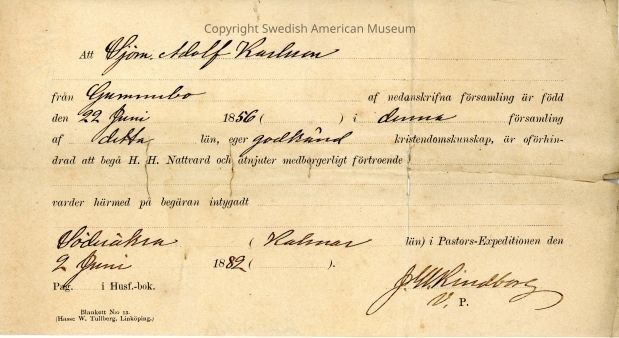 Copyright Swedish American Museum
Att Sjöm. Adolf Karlsson
från Gummebo af nedanskrifna församling är född
den 22 Juni 1856 ( ) i denna församling
af detta län, eger godkänd kristendomskunskap, är oförhin-
drad att begå H. H. Nattvard och åtnjuter medborgerligt förtroende
varder härmed på begäran intygadt
Söderåkra ( Kalmar län) i Pastors-Expeditionen den
2 Juni 1882 ( ).
Pag. i Husf.-bok. J. W. Rindborg
V. P.
Blankett N:o 12.
(Hans: W. Tullberg, Linköping.)